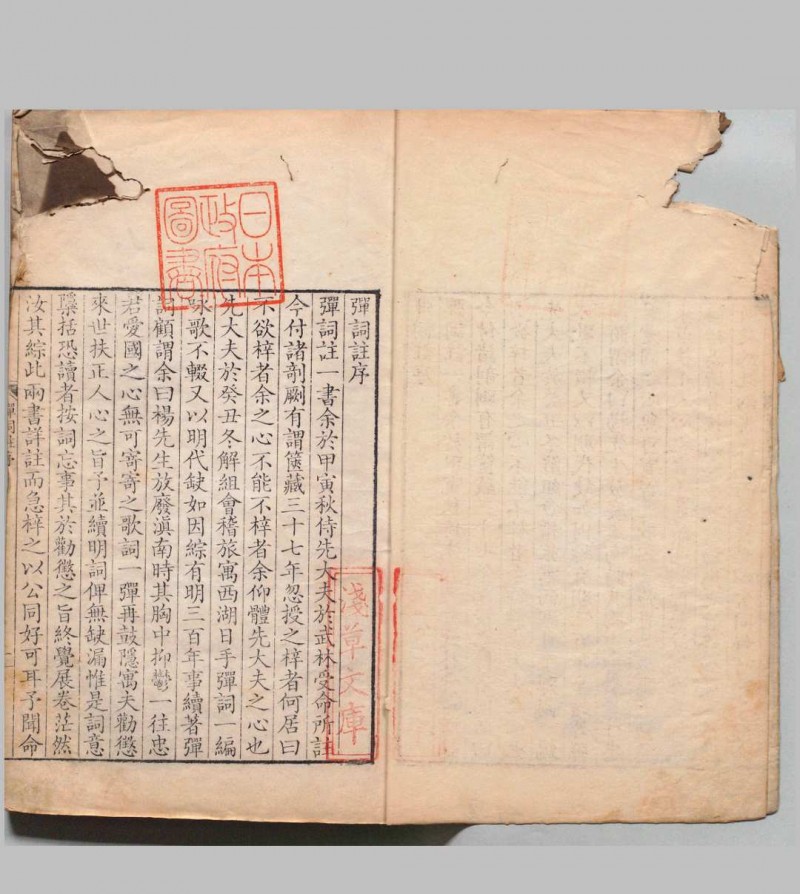 日本
政府
圖書
彈詞註序
彈詞註一書余於甲寅秋侍先大夫於武林受命所註
今付諸剞劂有謂篋藏三十七年忽授之梓者何居曰
不欲梓者余之心不能不梓者余仰體先大夫之心也
先大夫於癸丑冬解組會稽旅寓西湖日手彈詞一編
咏歌不輟又以明代缺如因綜有明三百年事續著彈
詞顧謂余曰楊先生放廢滇南時其胸中抑鬱一往忠
君愛國之心無可寄寄之歌詞一彈再鼓隱寓夫勸懲
來世扶正人心之旨予並續明詞俾無缺漏惟是詞意
檃括恐讀者按詞忘事其於勸懲之旨終覺展卷茫然
汝其綜此兩書詳註而急梓之以公同好可耳予聞命
彈詞註序
淺草文庫